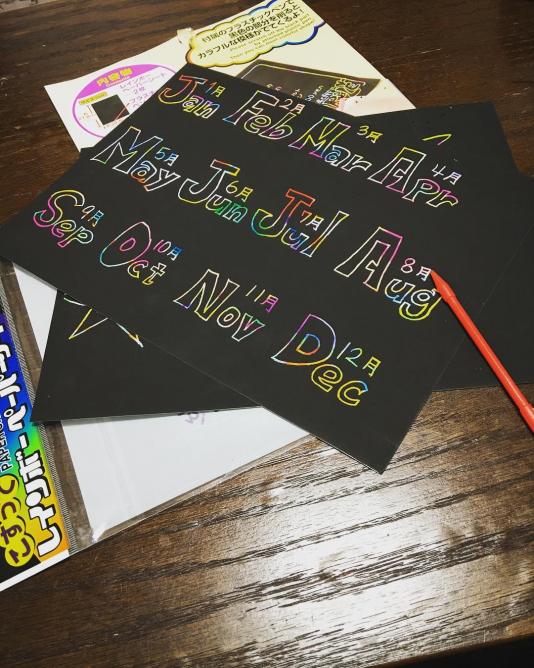 付属のプラスチックペンで
黒色の部分を削ると
カラフルな模様がでてくるよ!
内容物
レインボー
ペーパーシート
2枚
Jan 1月 Feb 2月 Mar 3月 Apr 4月
May 5月 Jun 6月 Jul 7月 Aug 8月
Sep 9月 Oct 10月 Nov 11月 Dec 12月
こすって
レインボーペーパー